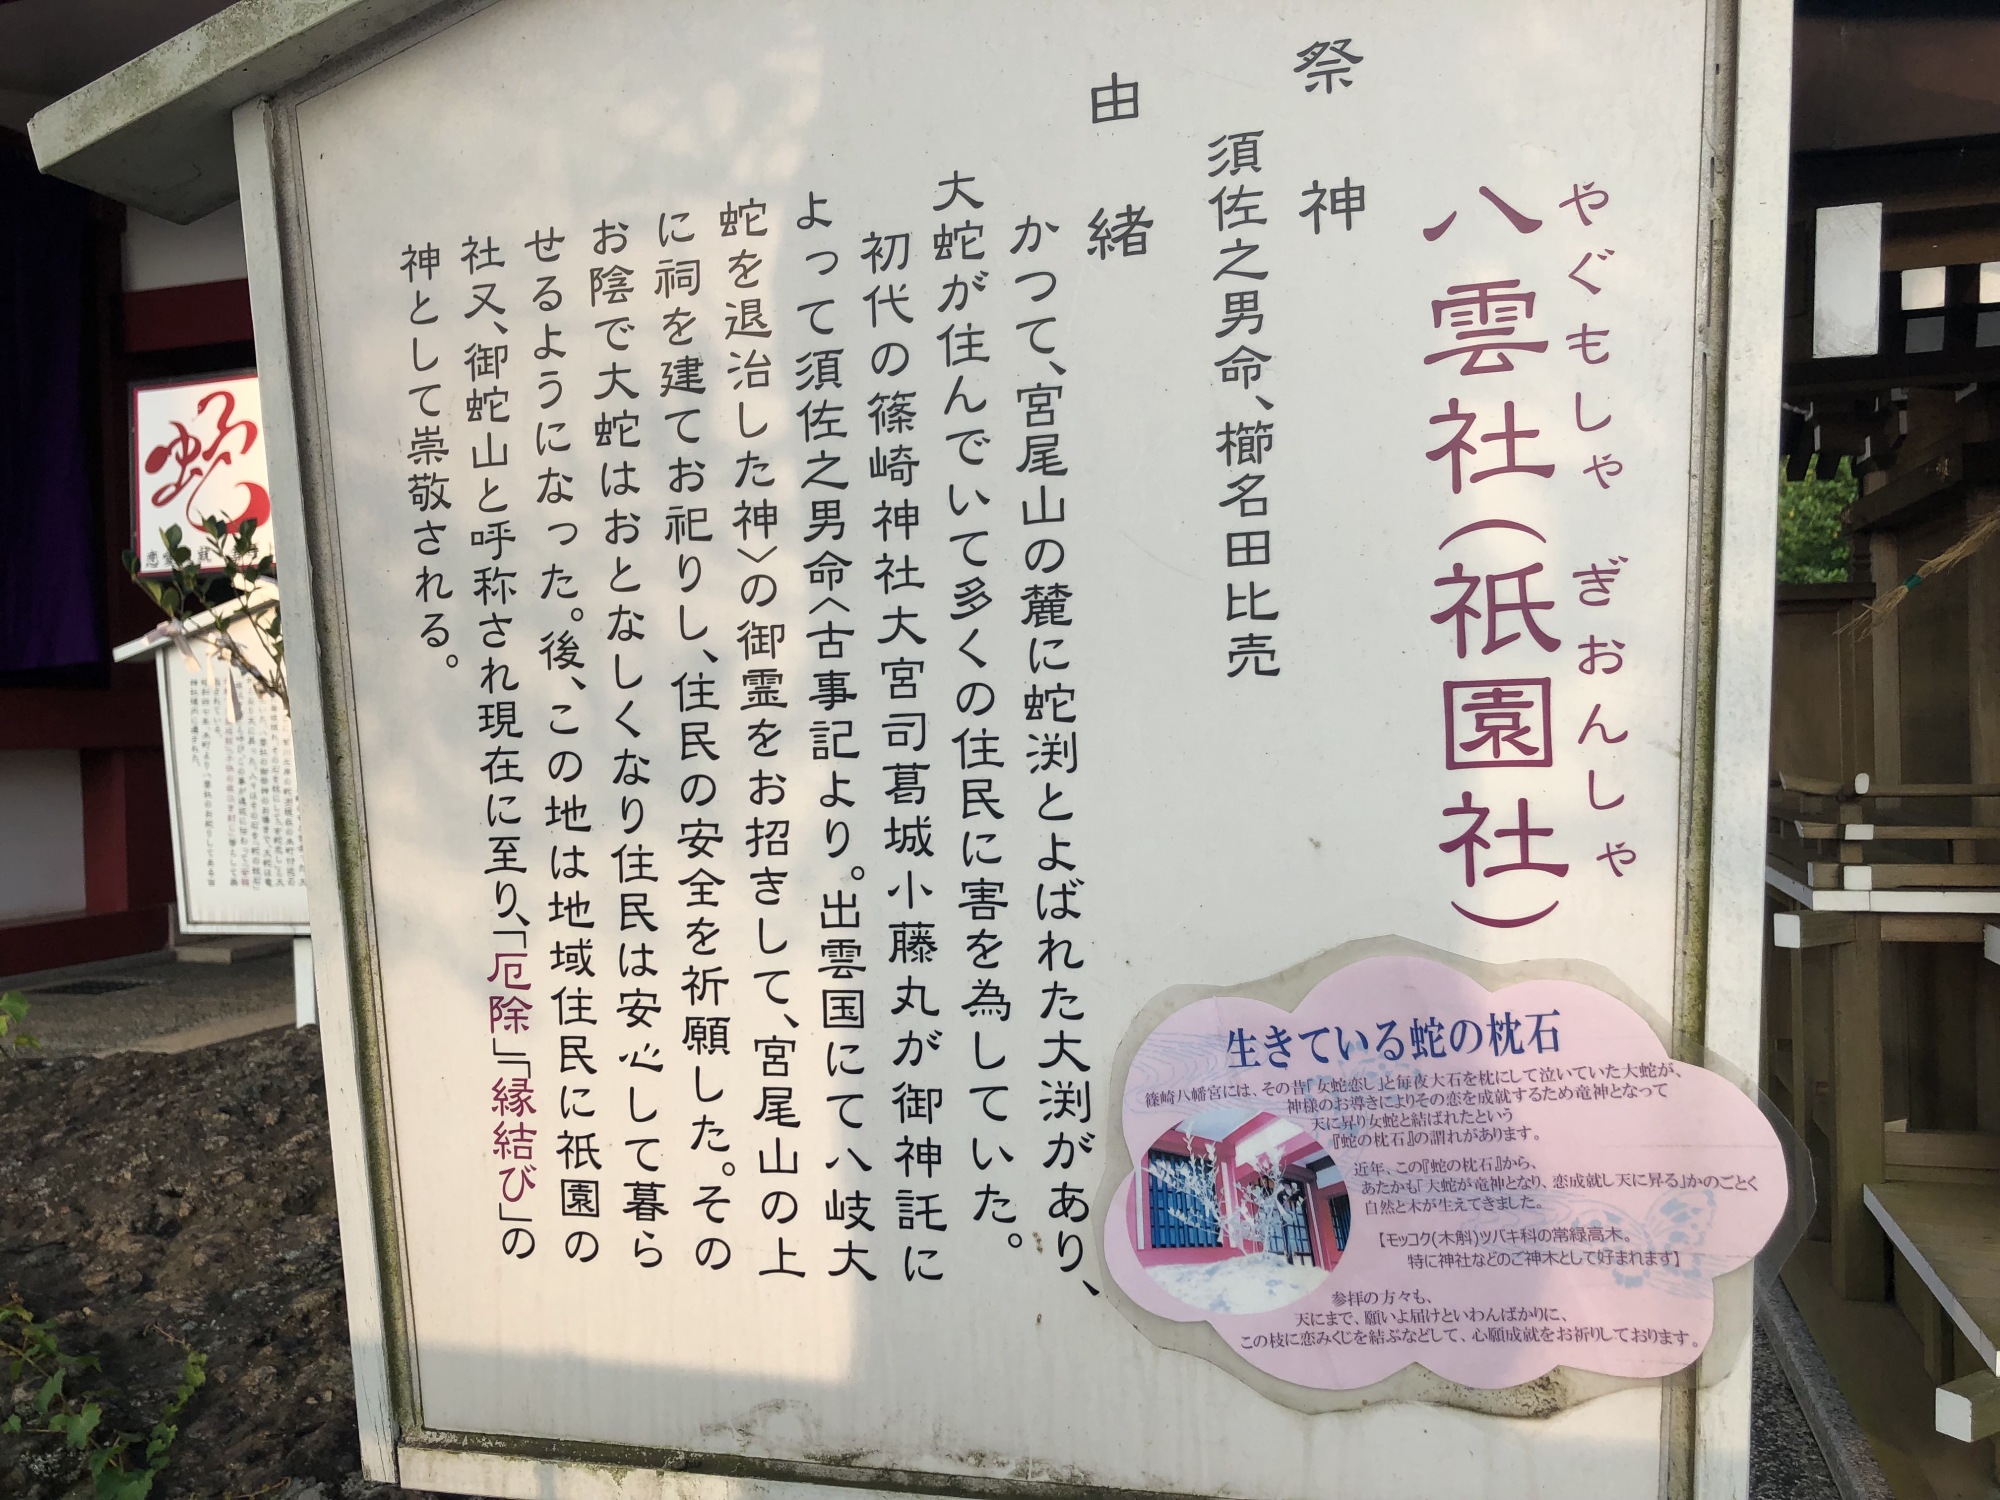 やぐもしゃ ぎおんしゃ
八雲社(祇園社)
祭神
須佐之男命、櫛名田比売
由緒
かつて、宮尾山の麓に蛇渕とよばれた大渕があり、
大蛇が住んでいて多くの住民に害を為していた。
初代の篠崎神社大宮司葛城小藤丸が御神託に
よって須佐之男命〈古事記より。出雲国にて八岐大
蛇を退治した神〉の御霊をお招きして、宮尾山の上
に祠を建てお祀りし、住民の安全を祈願した。その
お陰で大蛇はおとなしくなり住民は安心して暮ら
せるようになった。後、この地は地域住民に祇園の
社又、御蛇山と呼称され現在に至り、「厄除」『縁結び」の
神として崇敬される。
生きている蛇の枕石
篠崎八幡宮には、その昔「女蛇恋し」と毎夜大石を枕にして泣いていた大蛇が、
神様のお導きによりその恋を成就するため竜神となって
天に昇り女蛇と結ばれたという
『蛇の枕石』の謂れがあります。
近年、この『蛇の枕石』から、
あたかも「大蛇が竜神となり、恋成就し天に昇る」かのごとく
自然と木が生えてきました。
【モッコク(木斛)ツバキ科の常緑高木。
特に神社などのご神木として好まれます】
参拝の方々も、
天にまで、願いよ届けといわんばかりに、
この枝に恋みくじを結ぶなどして、心願成就をお祈りしております。
蛇